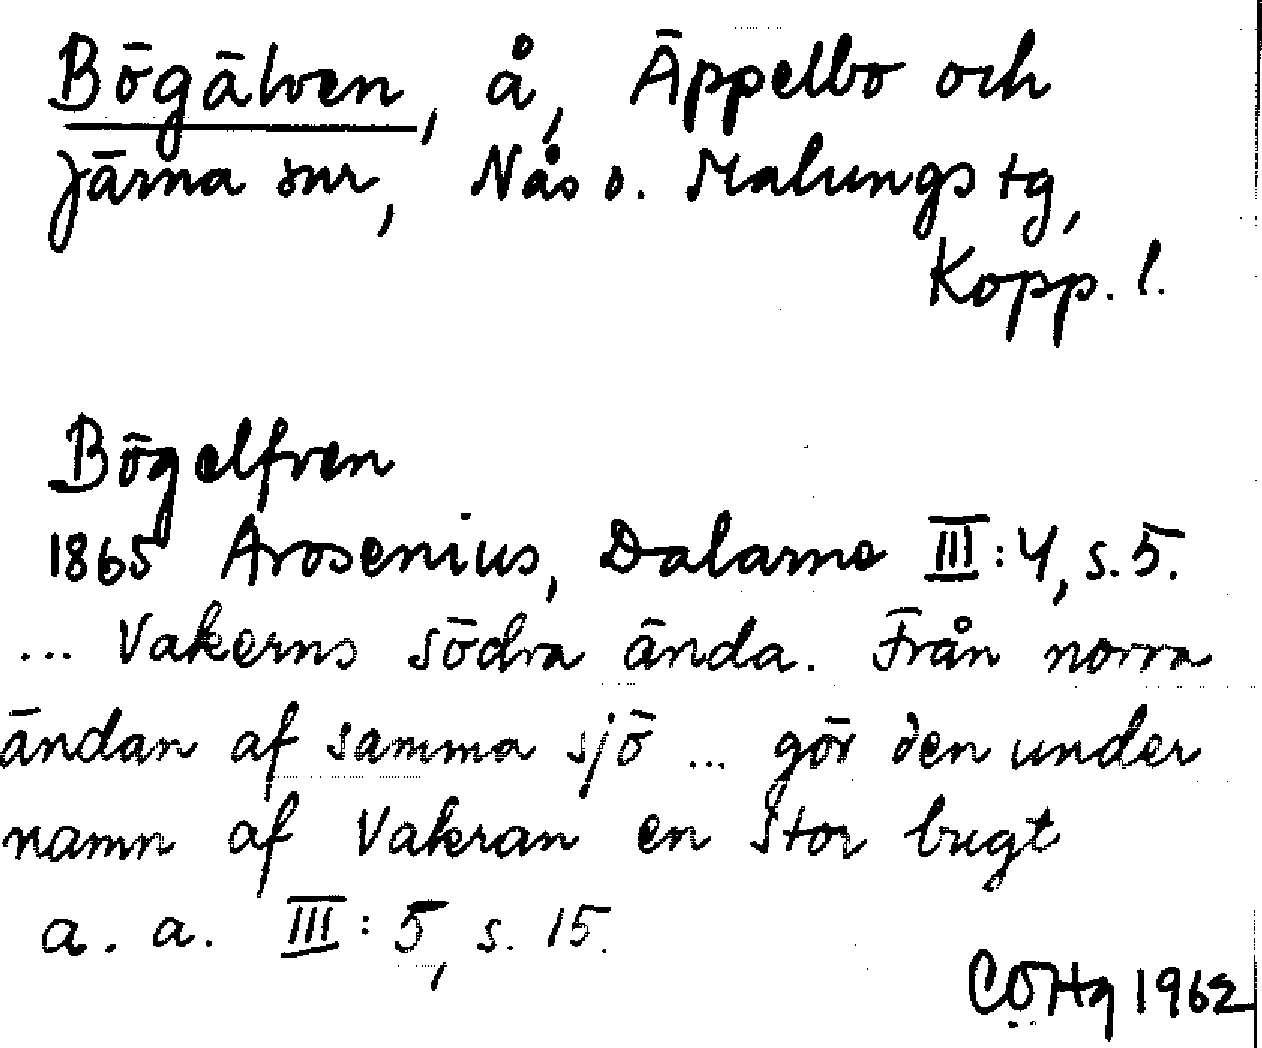 Bögälven, å, Äppelbo och
Järna snr, Nås o. Malungs tg,
Kopp. l.
Bögelfven
1865 Arosenius, Dalarne III:4, s. 5.
... Vakerns södra ända. Från norra
ändan af samma sjö ... gör den under
namn af Vakran en stor bugt
a. a. III:5, s. 15.
CÖHg 1962